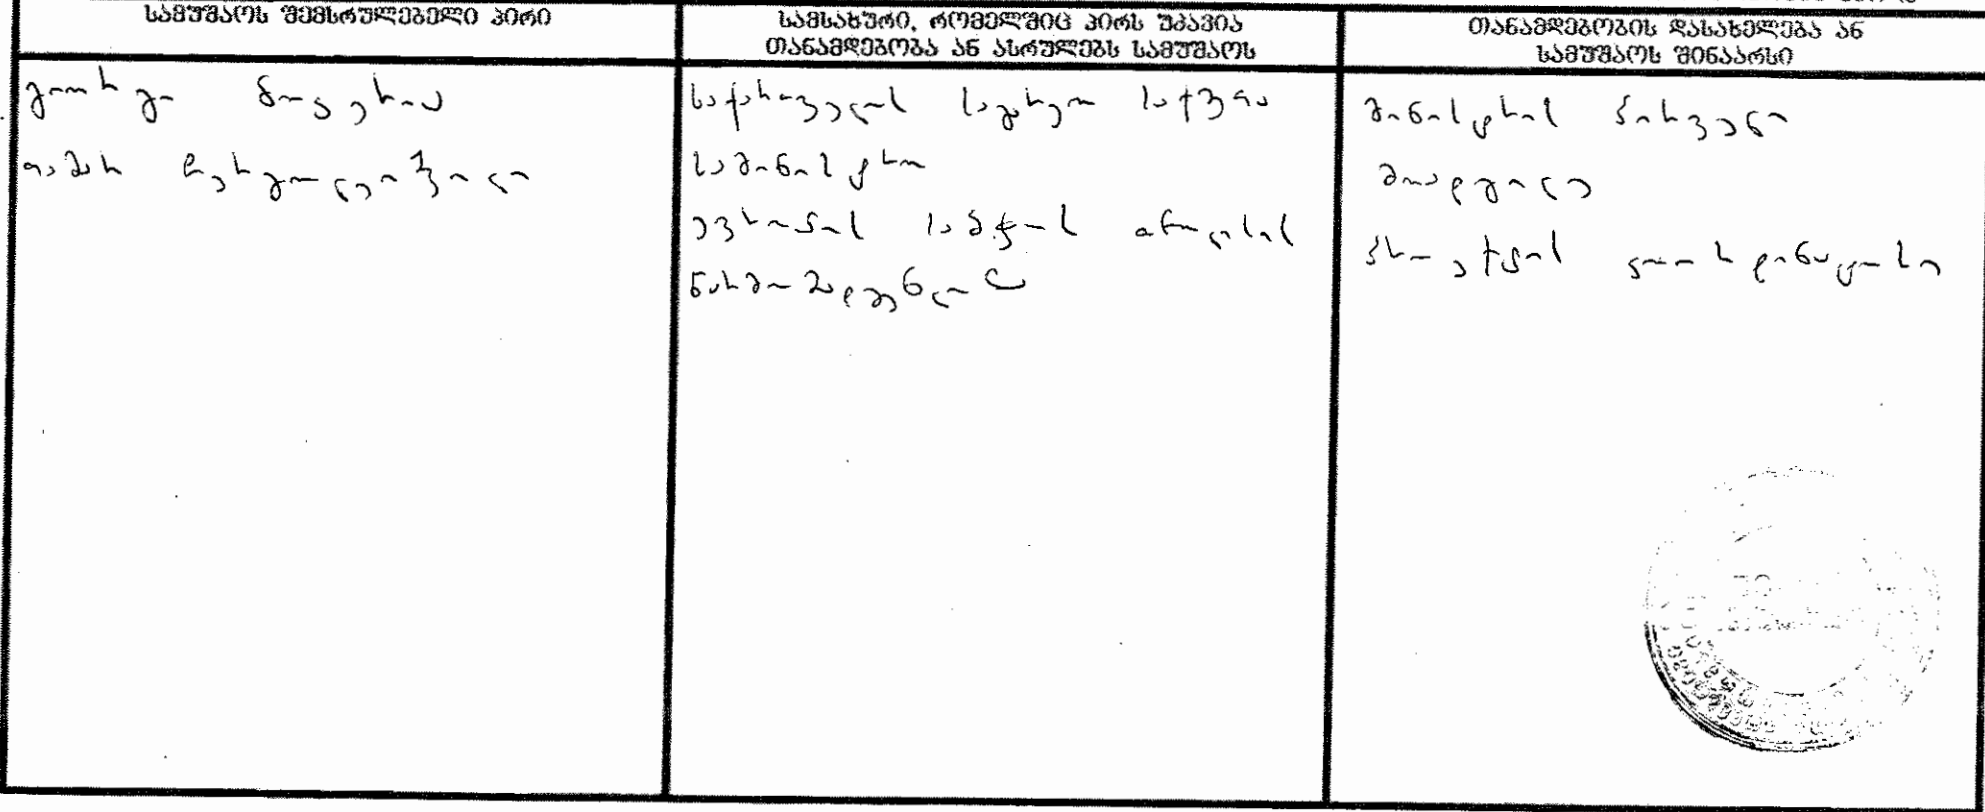 სამუშაოს შემსრულებელი პირი
სამსახური, რომელშიც პირს უკავია
თანამდებობა ან ასრულებს სამუშაოს
თანამდებობის დასახელება ან
სამუშაოს შინაარსი
გიორგი ბოკერია
თამარ ჩერგოლეიშვილი
საქართველოს საგარეო საქმეთა
სამინისტრო
ევროპის საბჭოს ოფისის
წარმომადგენლობა
მინისტრის პირველი
მოადგილე
პროექტის კოორდინატორი